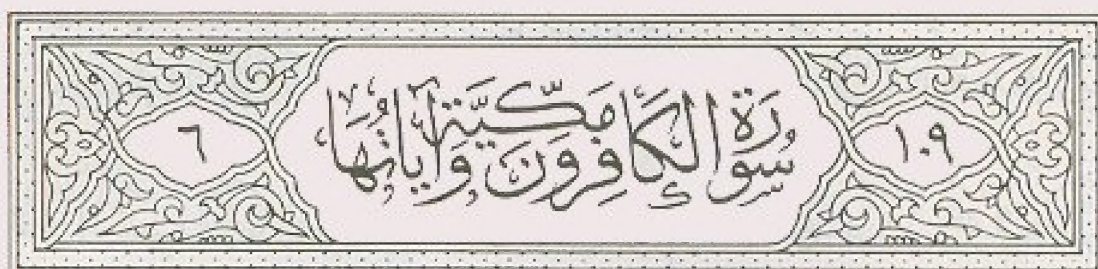 ١٠٩ سُورَةُ الْكَافِرُونَ مَكِّيَّة وَآيَاتُهَا ٦